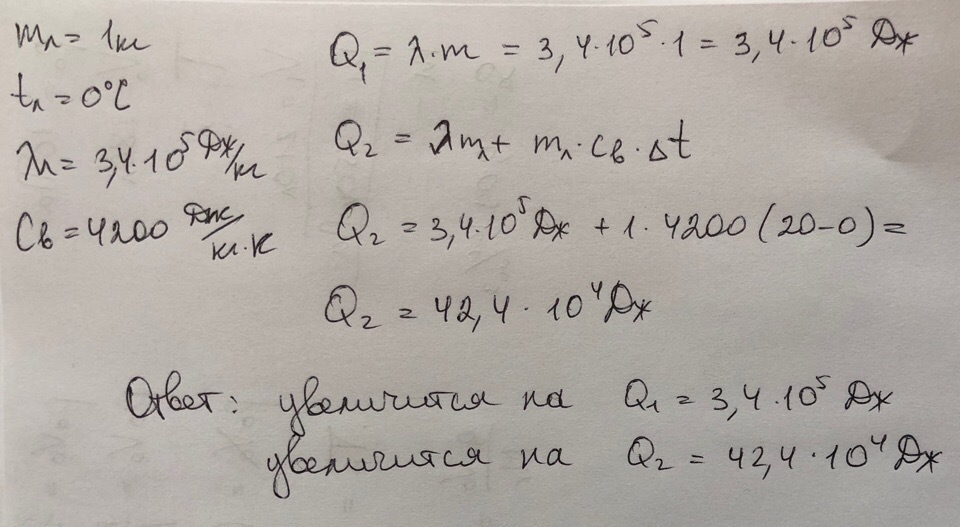 mл = 1кг
tл = 0°C
λл = 3,4·10⁵ Дж/кг
Cв = 4200 Дж/кг·К
Q₁ = λ·m = 3,4·10⁵·1 = 3,4·10⁵ Дж
Q₂ = λmл + mл·Cв·Δt
Q₂ = 3,4·10⁵ Дж + 1·4200(20-0) =
Q₂ = 42,4·10⁴ Дж
Ответ: увеличится на Q₁ = 3,4·10⁵ Дж
увеличится на Q₂ = 42,4·10⁴ Дж